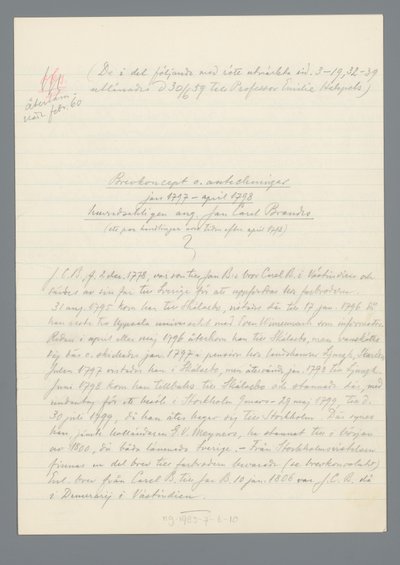 (De i det följande med rött utmärkta sid. 3-19, 32-39
utlånade d 30/6 59 till Professor Emilie
återläm-
nade febr. 60
Brevkoncept o. anteckningar
jan 1797 - april 1798
huvudsakligen ang. Jan Carel Brandes
(ett par handlingar från tiden efter april 1798)
J.C.B., f. 2 dec. 1778, var son till Jan B:s bror Carel B. i Västindien och
sändes av sin far till Sverige för att uppfostras hos farbrodern.
31 aug. 1795 kom han till Skälsebo, vistades där till 17 jan. 1796 då
han reste till Uppsala universitet med Sven Wimermark som informator.
Redan i april eller maj 1796 återkom han till Skälsebo, men vanskötte
sig där o. skickades jan. 1797 i pension hos landshövd. Ljungh,
Julen 1797 vistades han i Skälsebo, men återvände jan. 1798 till Ljungh.
Juni 1798 kom han tillbaka till Skälsebo och stannade där, med
undantag för ett besök i Stockholm jan - 29 maj 1799, till d.
30 juli 1799, då han åter begav sig till Stockholm. Där synes
han, jämte holländaren G. V. Meyners, ha stannat till i början
av 1800, då båda lämnade Sverige. - Från Stockholmsvistelsen
finnas en del brev till farbrodern bevarade (se brevkonvolutet)
Enl. brev från Carel B. till Jan B. 10 jan. 1806 var J.C.B. då
i Demerarij i Västindien.
ng-1985-7-6-10